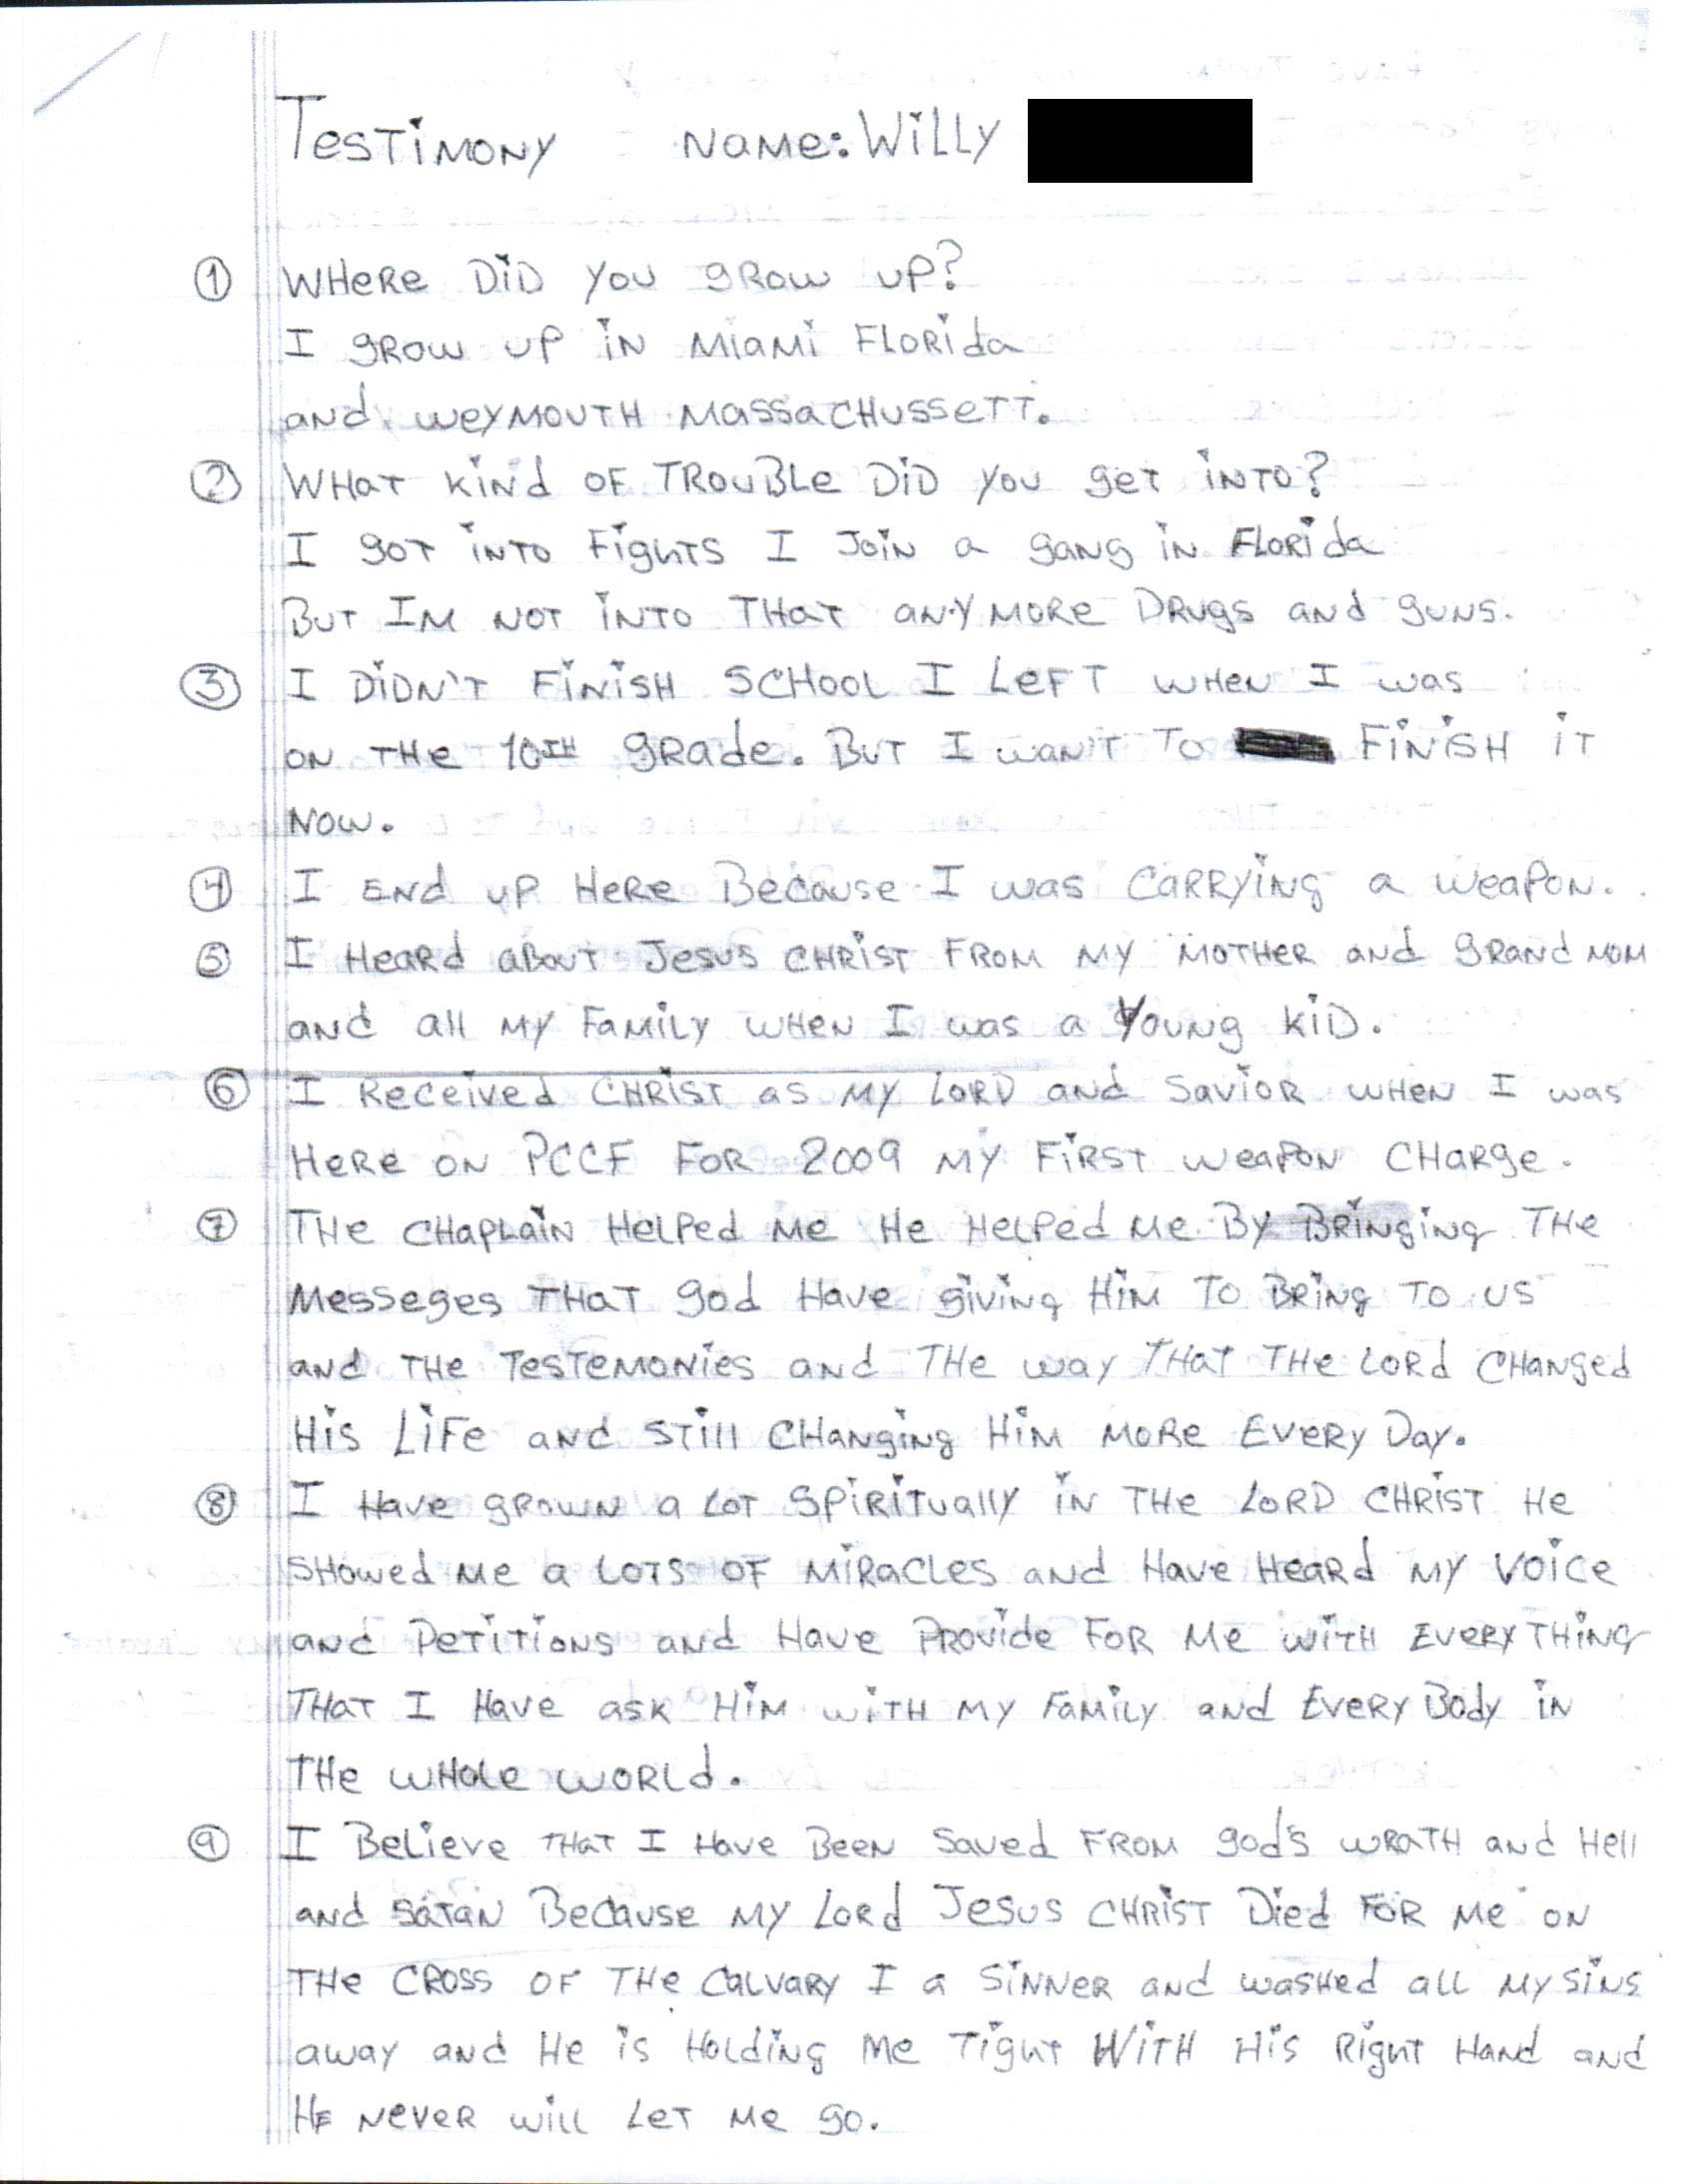 Testimony Name: Willy
① Where did you grow up?
I grow up in Miami Florida
and Weymouth Massachussett.
② What kind of trouble did you get into?
I got into fights I join a gang in Florida
But Im not into that anymore Drugs and guns.
③ I didn't finish school I left when I was
on the 10th grade. But I wan't to finish it
now.
④ I end up here Because I was carrying a weapon.
⑤ I Heard about Jesus Christ from my mother and grand mom
and all my Family when I was a Young kid.
⑥ I Received Christ as my Lord and Savior when I was
Here on PCCF For 2009 my First weapon charge.
⑦ The chaplain Helped me He Helped me By Bringing the
Messeges that god Have giving Him to Bring to us
and the Testemonies and the way that the Lord changed
His Life and still changing Him more Every Day.
⑧ I Have grown a Lot spiritually in the Lord Christ He
showed me a Lots of miracles and Have Heard my voice
and Petitions and Have Provide For me with Everything
that I Have ask Him with my Family and Every Body in
the whole world.
⑨ I Believe that I Have Been saved From god's wrath and Hell
and satan Because my Lord Jesus Christ Died For me on
the cross of the calvary I a sinner and washed all my sins
away and He is Holding me Tight With His Right Hand and
He never will Let me go.